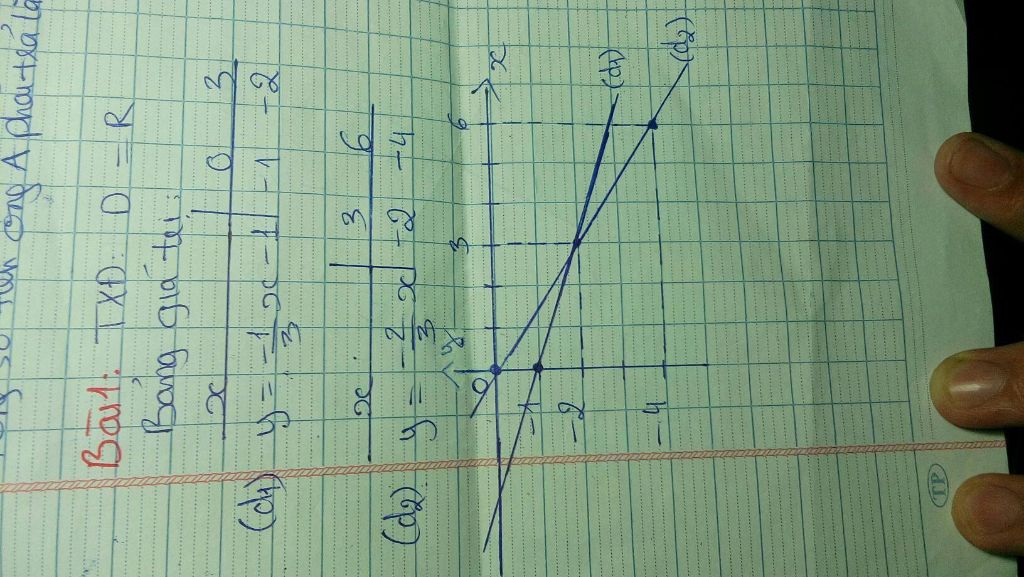 ông A phải trả là
Bài 1: TXĐ: D = R
Bảng giá trị:
x 0 3
(d1) y = -1/3 x - 1 -1 -2
x 3 6
(d2) y = -2/3 x -2 -4
y
0 3 6 x
-1
-2
-4
(d1)
(d2)
TP